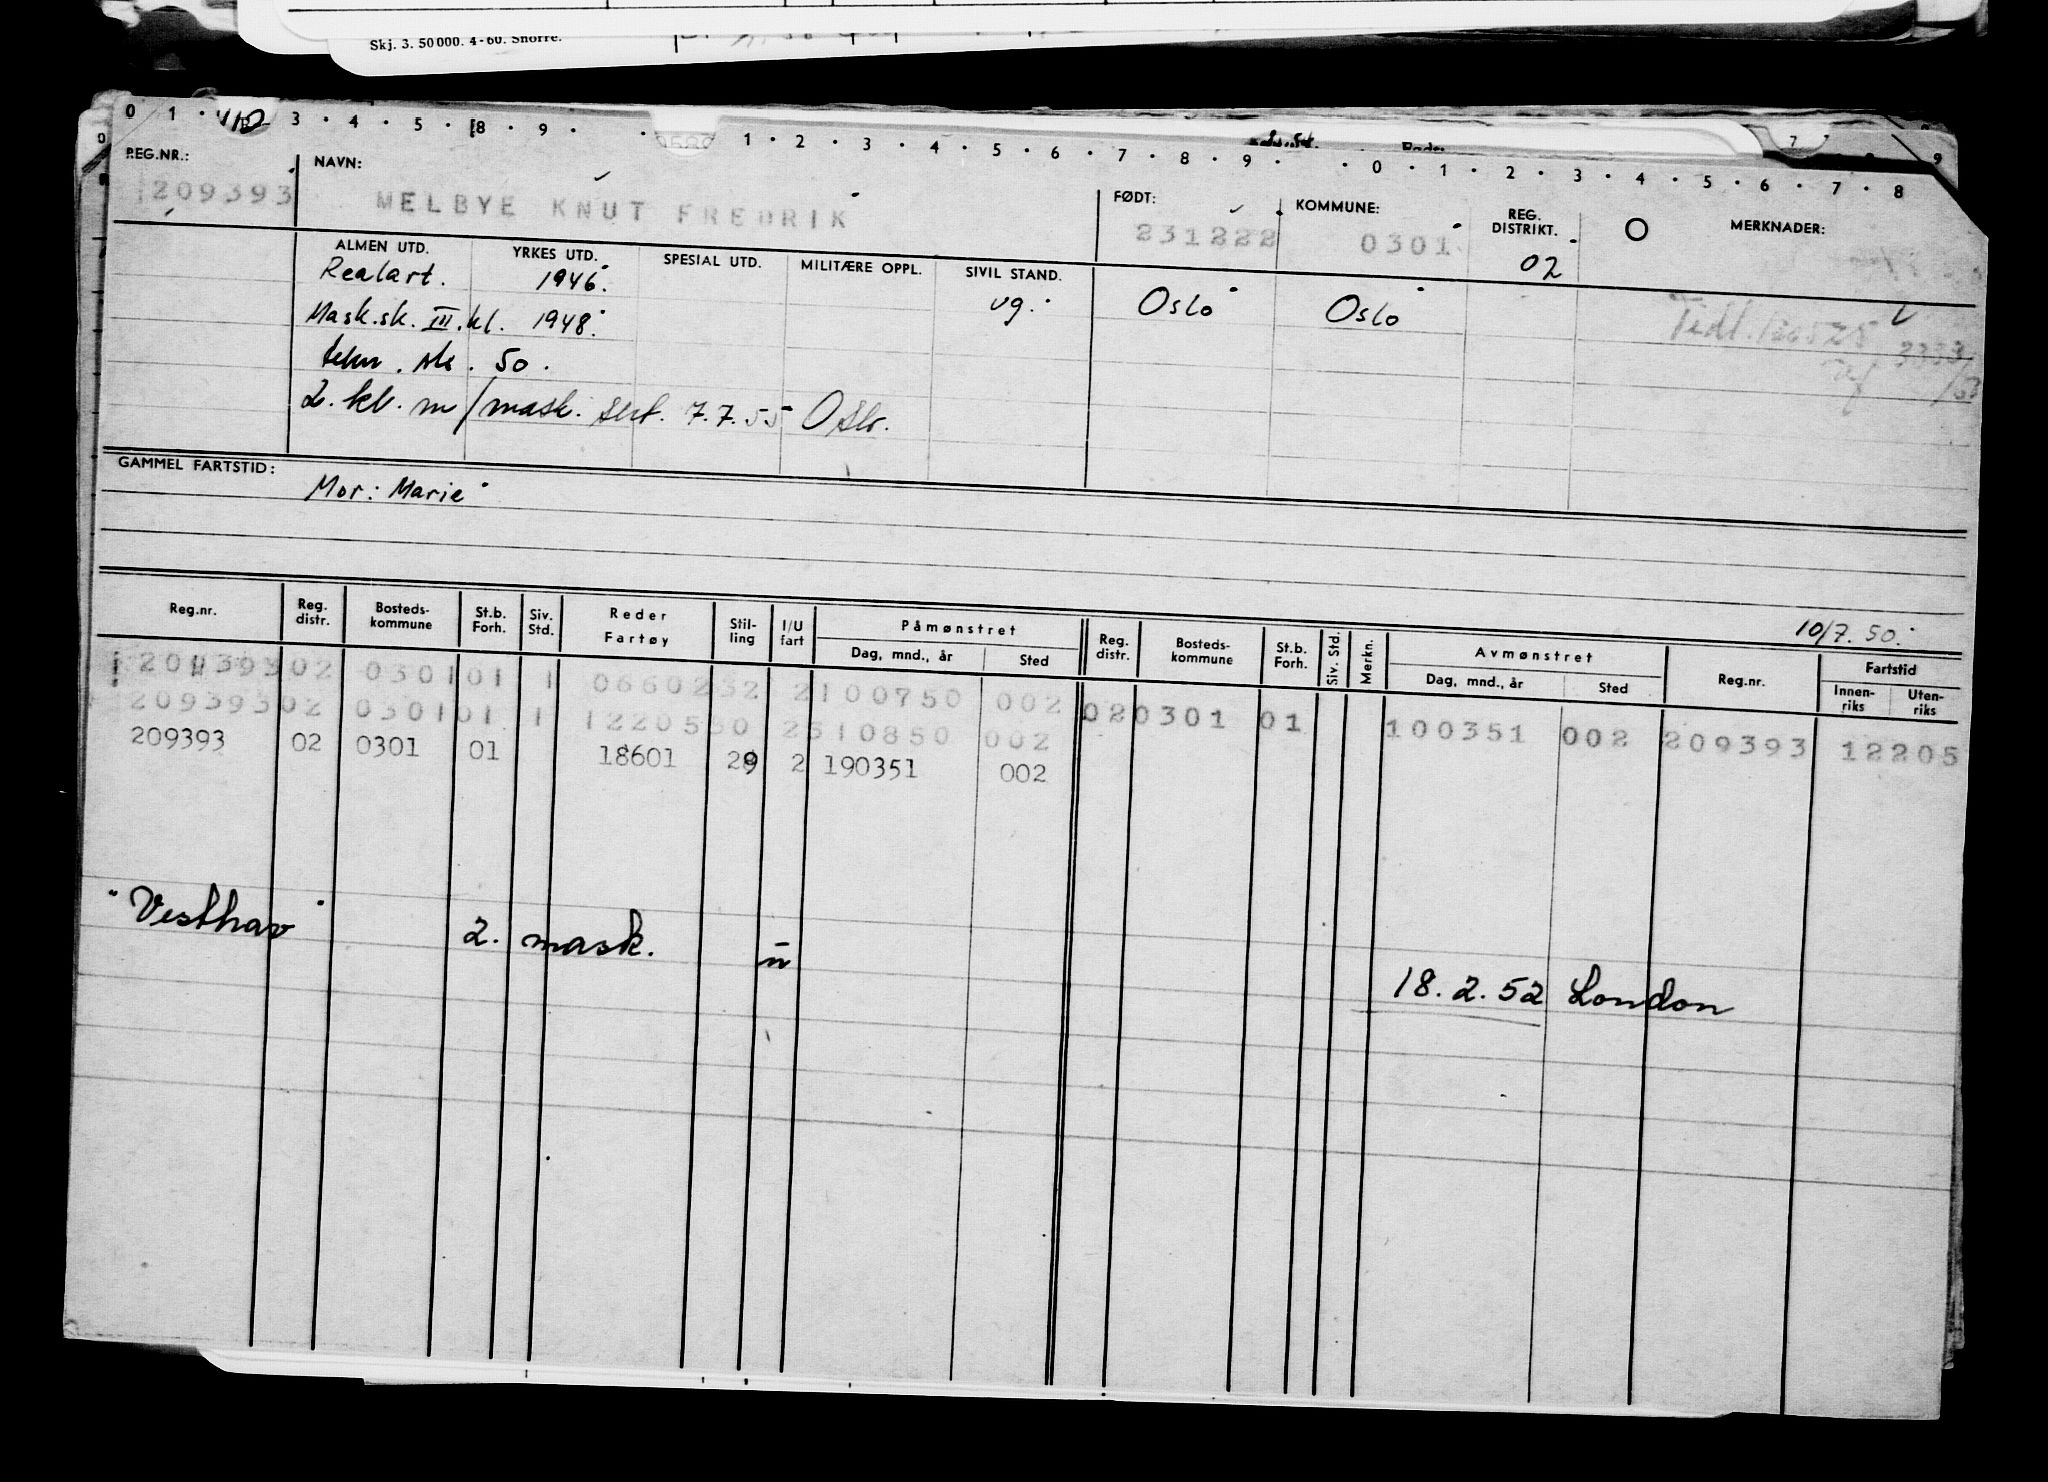 Skj. 3. 50000. 4-60. Snorre.
0 1 · 3 · 4 · 5 · 8 · 9 · · 1 · 2 · 3 · 4 · 5 · 6 · 7 · 8 · 9 · · 0 · 1 · 2 · 3 · 4 · 5 · 6 · 7 · 8
REG.NR.: NAVN: FØDT: KOMMUNE: REG. DISTRIKT. O MERKNADER:
209393 MELBYE KNUT FREDRIK 231222 0301 02
ALMEN UTD. YRKES UTD. SPESIAL UTD. MILITÆRE OPPL. SIVIL STAND.
Realart. 1946. ug. Oslo Oslo
Mask.sk. III.kl. 1948. Tidl. 3333
tekn. 50.
2. kl. m/mask. sert. 7.7.55 Oslo.
GAMMEL FARTSTID:
Mor: Marie
10/7.50.
Reg.nr. Reg. distr. Bosteds- kommune St.b. Forh. Siv. Std. Reder Fartøy Stil- ling I/U fart Påmønstret Reg. distr. Bosteds- kommune St.b. Forh. Siv. Std. Merkn. Avmønstret Reg.nr. Fartstid
Dag, mnd., år Sted Dag, mnd., år Sted Innen- riks Uten- riks
209393 02 0301 01 1 0660232 2 100750 002
209393 02 0301 01 1 1220530 2 310850 002 02 0301 01 100351 002 209393 12205
209393 02 0301 01 18601 29 2 190351 002
"Vesthav" 2. mask. u 18.2.52 London